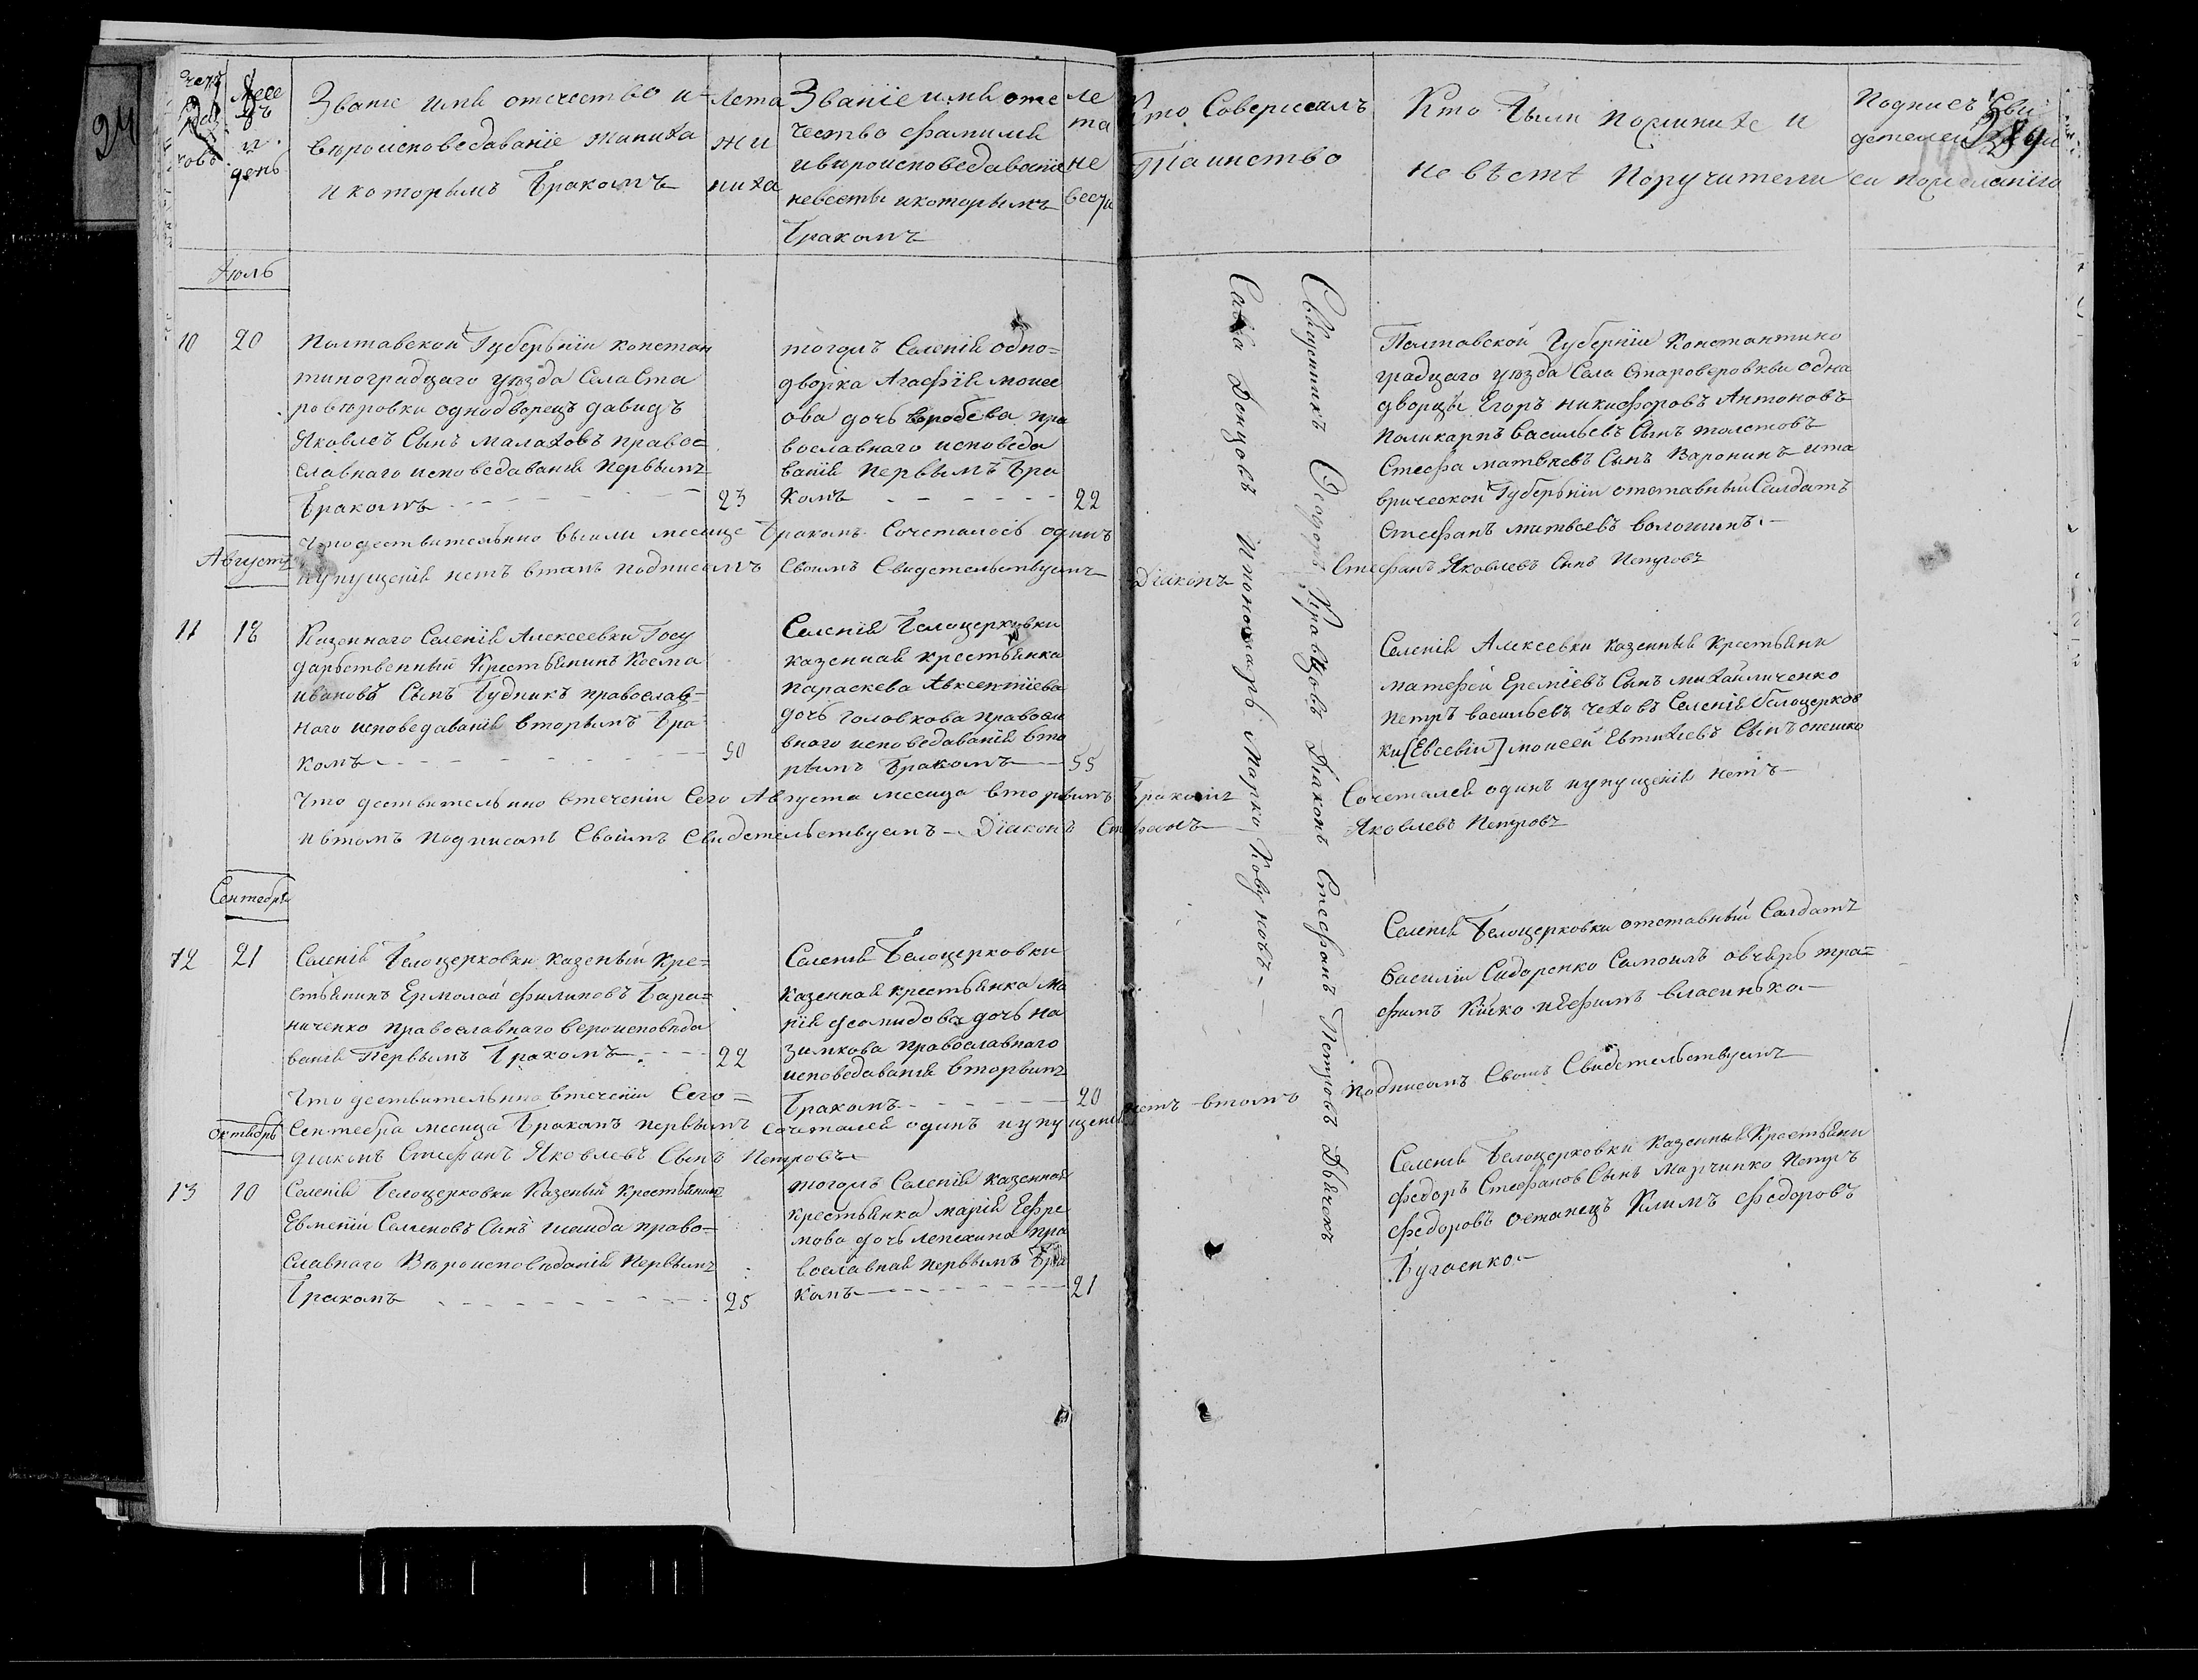 24
Счетъ браковъ
Месецъ и день
Званіе имя отечество и
вероисповедаваніе жениха
и которымъ бракомъ
Лета
жи
ниха
Званіе имя оте
чество фамилия
ивироисповедавание
невесты икоторымъ
бракомъ
ле
та
не
весты
Кто Совершалъ
Таинство
Кто были пожинихе и
невъсте поручители
Подписъ Сви
детелей
си пожеланію
Июль
10
20
Полтавской Губерьнїи констан
тиноградцаго уѣзда Села Ста
ровѣровки однодворецъ давидъ
Яковлевъ Сынъ малаховъ право=
славнаго исповедаванія первымъ
бракомъ
23
тогожъ Селенія одно=
дворка Агафїя моисе
ова дочь воробева пра
вославнаго исповеда
ванія первымъ бра
комъ
22
Полтавской Губерніи Константино
градцаго уѣзда Села Староверовкви одна
дворцы Егоръ никифоровъ Антоновъ
Поликарпъ васильевъ Сынъ толстовъ
Стефа матвѣевъ Сынъ Варонинъ ита
врической Губерьніи отставный Салдатъ
Стефанъ матвеевъ волошинъ
Что действительнно вЫюли месяце бракомъ Сочеталосъ одинъ
ипупущенія нетъ втомъ подписомъ Своимъ Свидетельствуемъ Діаконъ Стефанъ Яковлевъ Сынъ Петровъ
Августъ
11
18
Казеннаго Селенія Алексеевки Госу
дарственный Крестьянинъ Косма
ивановъ Сынъ Будникъ православ=
наго исповедаванія вторымъ бра
комъ
50
Селенія Белоцерковки
казенная крестьянка
параскева Авксентіева
дочь головкова правосла
внаго исповедаванія вто
рымъ бракомъ
55
Селенія Алексевки казенныя крестьяни
матефей Ереміевъ Сынъ михайличенко
петръ васильевъ чеховъ Селенія белоцерков
ки [Евсевіи] моисей Евтихіевъ Сынъ онешко
Что дествительнно втеченіи Сего Августа месяца вторымъ бракомъ Сочеталея одинъ ипупущенія нетъ
ивтомъ подписомъ Своимъ Свидетельствуемъ Діаконъ Стефанъ Яковлевъ Петровъ
Сентебрь
12
21
Селенія Белоцерковки казеный кре=
стьянинъ Ермолай филиповъ бара=
ниченко православнаго вероисповѣда
ванія первымъ бракомъ
22
Селенія Белоцерковки
казенная крестьянка Ма
рїя фсомидова дочь на
зимкова православнаго
исповедаванія вторымъ
бракомъ
20
Селенія Белоцерковки отставный Салдатъ
Василіи Сидоренко Самоилъ овчаръ тра=
фимъ Кійко иефимъ власинько
Что дествительнна втеченіи Сего=
Сентебра месяца бракомъ первымъ Сочеталея одинъ ипупущенія нетъ втомъ подписомъ Своимъ Свидетельствуемъ
діаконъ Стефанъ Яковлевъ Сынъ Петровъ
Октябрь
13
10
Селенія Белоцерковки Казеный Крестьянинъ
Евменіи Семеновъ Сынъ право=
Славнаго Вѣроисповѣданія первымъ
бракомъ
25
тогожъ Селенія казенная
крестьянка марія Ефре
мова дочь лепехина пра
вославная первымъ бра
комъ
21
Селенія Белоцерковки Казенныя Крестьяни
федоръ Стефановъ Сынъ Марчинко Петръ
федоровъ останецъ Климъ федоровъ
бугаенко
Священникъ Феодоръ Кравцовъ Діаконъ Стефанъ Петровъ Дьячокъ
Сава Донцовъ Ипономаръ Марко Ковуновъ